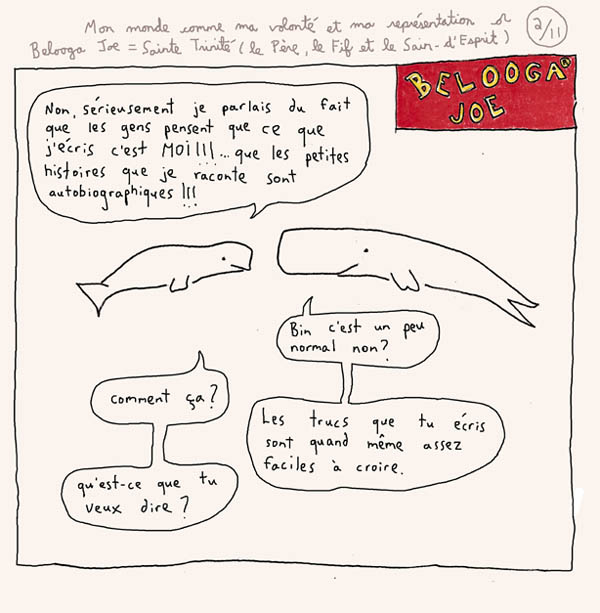 Mon monde comme ma volonté et ma représentation or
Belooga Joe = Sainte Trinité (le Père, le Fif et le Sain-d'Esprit)
2/11
BELOOGA
JOE
Non, sérieusement je parlais du fait
que les gens pensent que ce que
j'écris c'est MOI!!!... que les petites
histoires que je raconte sont
autobiographiques !!!
Bin c'est un peu
normal non?
Les trucs que tu écris
sont quand même assez
faciles à croire.
comment ça?
qu'est-ce que tu
veux dire?